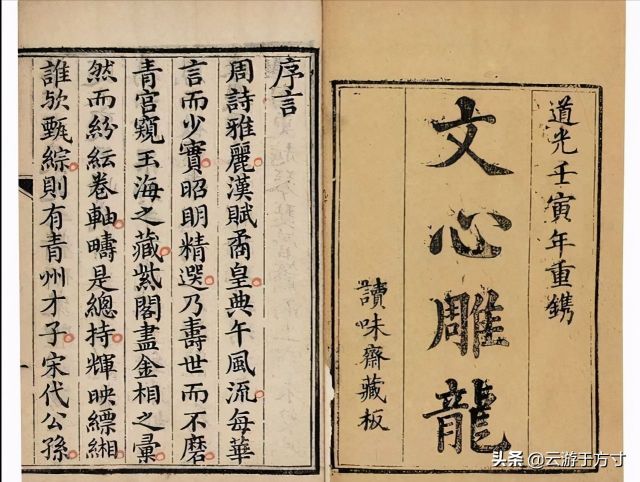 道光壬寅年重鐫
文心雕龍
讀味齋藏板
序言
周詩雅麗漢賦矞皇典午風流每華
言而少實昭明精選乃壽世而不磨
青宮窺玉海之藏紫閣盡金相之彙
然而紛紜卷軸疇是總持輝映縹緗
誰欤甄綜則有青州才子宋代公孫
头条 @云游于方寸